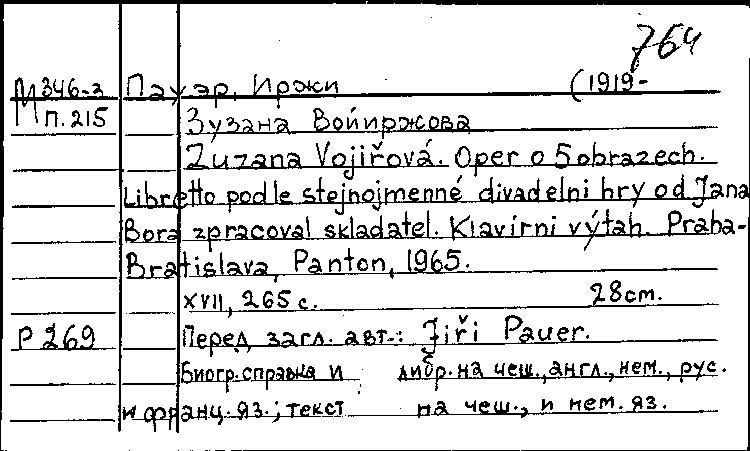 764
М 346-3 Пауэр, Иржи (1919-
П.215 Зузана Войиржова
Zuzana Vojiřová. Oper o 5 obrazech.
Libretto podle stejnojmenné divadelni hry od Jana
Bora zpracoval skladatel. Klavírni výtah. Praha-
Bratislava, Panton, 1965.
XVII, 265 с. 28cm.
Р 269 Перед загл. авт.: Jiří Pauer.
Биогр.справка и либр. на чеш., англ., нем., рус.
и франц. яз.; текст на чеш., и нем. яз.